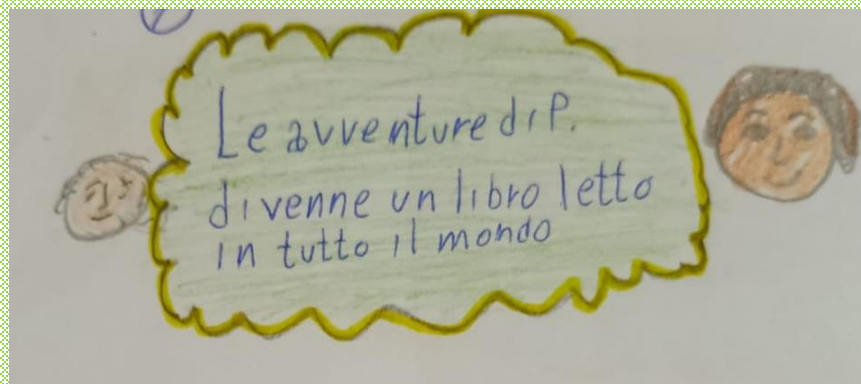 Le avventure di P.
divenne un libro letto
in tutto il mondo